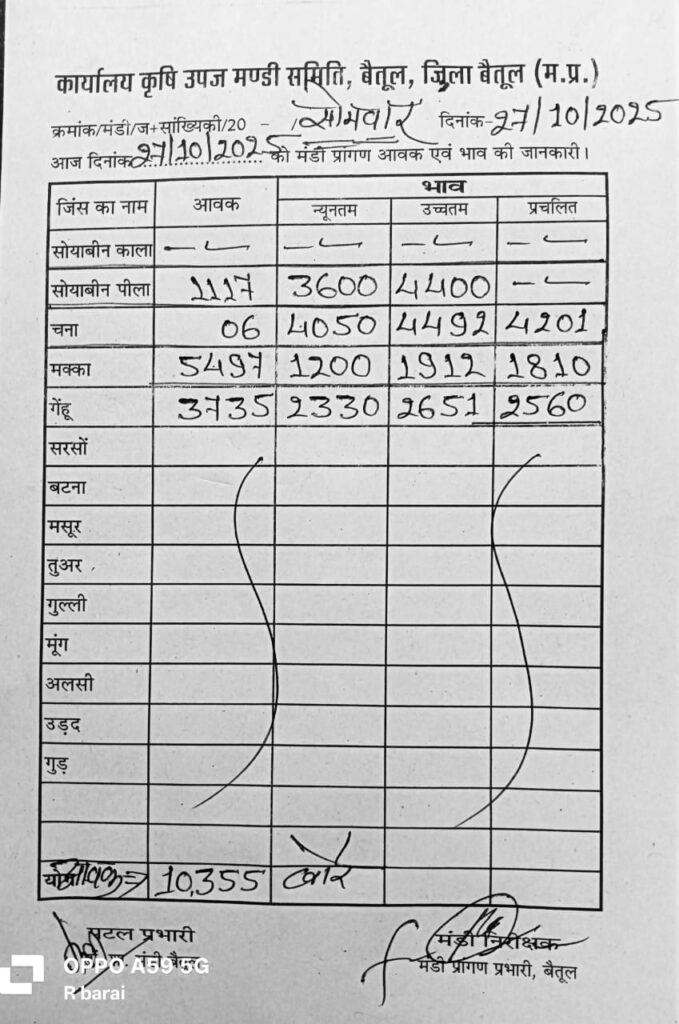 कार्यालय कृषि उपज मण्डी समिति, बैतूल, जिला बैतूल (म.प्र.)
क्रमांक/मंडी/ज+सांख्यिकी/20 - /सोमवार दिनांक-27/10/2025
आज दिनांक 27/10/2025 को मंडी प्रांगण आवक एवं भाव की जानकारी।
जिंस का नाम आवक भाव
न्यूनतम उच्चतम प्रचलित
सोयाबीन काला -- -- -- --
सोयाबीन पीला 1117 3600 4400 --
चना 06 4050 4492 4201
मक्का 5497 1200 1912 1810
गेंहू 3735 2330 2651 2560
सरसों
बटना
मसूर
तुअर
गुल्ली
मूंग
अलसी
उड़द
गुड़
आवक 10,355 बोरे
पटल प्रभारी मंडी निरीक्षक
मंडी बैतूल मंडी प्रांगण प्रभारी, बैतूल
OPPO A59 5G
R barai